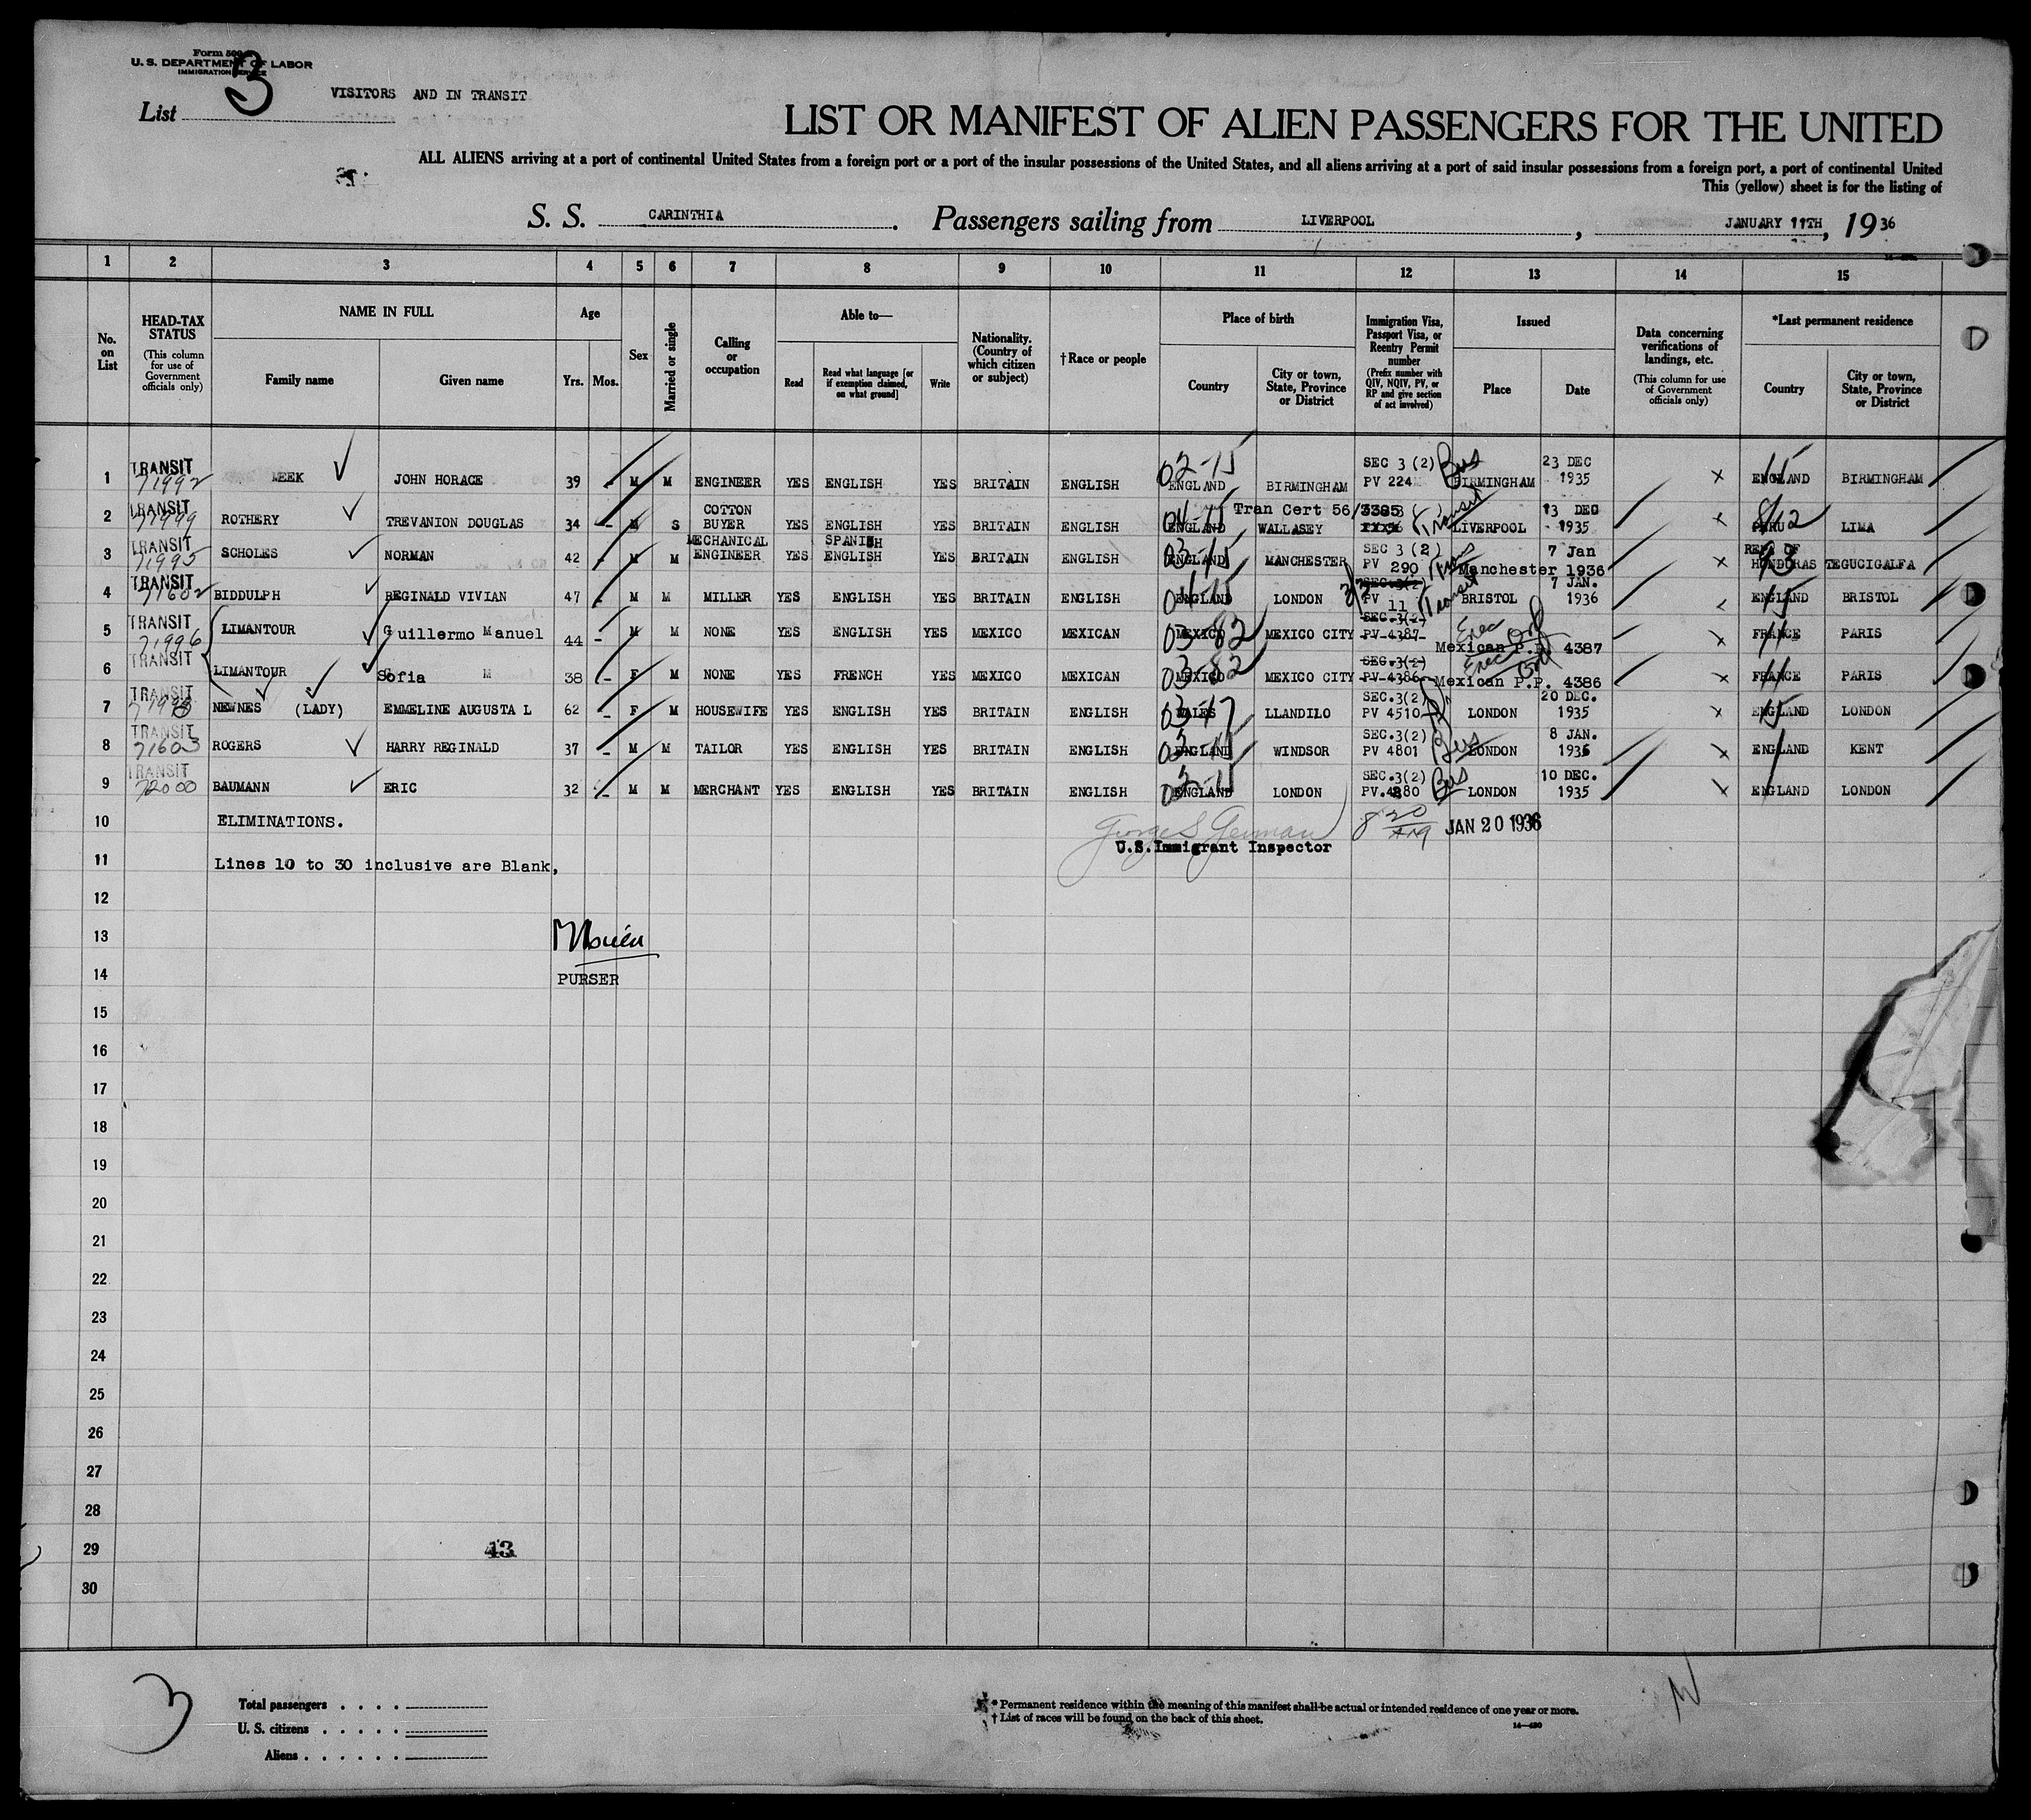 Form 500
U. S. DEPARTMENT OF LABOR
IMMIGRATION SERVICE
3
VISITORS AND IN TRANSIT
List
LIST OR MANIFEST OF ALIEN PASSENGERS FOR THE UNITED
ALL ALIENS arriving at a port of continental United States from a foreign port or a port of the insular possessions of the United States, and all aliens arriving at a port of said insular possessions from a foreign port, a port of continental United
This (yellow) sheet is for the listing of
S. S. CARINTHIA . Passengers sailing from LIVERPOOL , JANUARY 11TH, 1936
1 2 3 4 5 6 7 8 9 10 11 12 13 14 15
No. on List
HEAD-TAX STATUS (This column for use of Government officials only)
NAME IN FULL
Family name Given name
Age
Yrs. Mos.
Sex
Married or single
Calling or occupation
Able to—
Read Read what language [or if exemption claimed, on what ground] Write
Nationality. (Country of which citizen or subject)
†Race or people
Place of birth
Country City or town, State, Province or District
Immigration Visa, Passport Visa, or Reentry Permit number (Prefix number with QIV, NQIV, PV, or RP and give section of act involved)
Issued
Place Date
Data concerning verifications of landings, etc. (This column for use of Government officials only)
*Last permanent residence
Country City or town, State, Province or District
1 TRANSIT 71992 MEEK JOHN HORACE 39 - M M ENGINEER YES ENGLISH YES BRITAIN ENGLISH 02-15 ENGLAND BIRMINGHAM SEC 3 (2) PV 224 Bus BIRMINGHAM 23 DEC 1935 x 15 ENGLAND BIRMINGHAM
2 TRANSIT 71999 ROTHERY TREVANION DOUGLAS 34 - M S COTTON BUYER YES ENGLISH YES BRITAIN ENGLISH 04-15 ENGLAND WALLASEY Tran Cert 56/3385 Transit LIVERPOOL 13 DEC 1935 x 8/12 PERU LIMA
3 TRANSIT 71995 SCHOLES NORMAN 42 - M M MECHANICAL ENGINEER YES SPANISH ENGLISH YES BRITAIN ENGLISH 03-15 ENGLAND MANCHESTER SEC 3 (2) PV 290 Trans Manchester 7 Jan 1936 x 93 REP. OF HONDURAS TEGUCIGALFA
4 TRANSIT 71602 BIDDULPH REGINALD VIVIAN 47 - M M MILLER YES ENGLISH YES BRITAIN ENGLISH 04-15 ENGLAND LONDON 3/2 SEC.3(2) PV 11 Transit BRISTOL 7 JAN. 1936 x 15 ENGLAND BRISTOL
5 TRANSIT 71996 LIMANTOUR Guillermo Manuel 44 - M M NONE YES ENGLISH YES MEXICO MEXICAN 03-82 MEXICO MEXICO CITY SEC.3(2) PV-4387- Exec Ord Mexican P.P. 4387 x 11 FRANCE PARIS
6 TRANSIT LIMANTOUR Sofia M 38 - F M NONE YES FRENCH YES MEXICO MEXICAN 03-82 MEXICO MEXICO CITY SEC.3(2) PV-4386- Exec Ord Mexican P.P. 4386 x 11 FRANCE PARIS
7 TRANSIT 71998 NEWNES (LADY) EMMELINE AUGUSTA L 62 - F M HOUSEWIFE YES ENGLISH YES BRITAIN ENGLISH 03-17 WALES LLANDILO SEC.3(2) PV 4510 LONDON 20 DEC. 1935 x 15 ENGLAND LONDON
8 TRANSIT 71603 ROGERS HARRY REGINALD 37 - M M TAILOR YES ENGLISH YES BRITAIN ENGLISH 02-15 ENGLAND WINDSOR SEC.3(2) PV 4801 Bus LONDON 8 JAN. 1936 x ENGLAND KENT
9 TRANSIT 72000 BAUMANN ERIC 32 - M M MERCHANT YES ENGLISH YES BRITAIN ENGLISH 02-15 ENGLAND LONDON SEC.3(2) PV.4280 Bus LONDON 10 DEC. 1935 x ENGLAND LONDON
10 ELIMINATIONS. George S German JAN 20 1936
U.S. Immigrant Inspector
11 Lines 10 to 30 inclusive are Blank,
12
13
14 PURSER
15
16
17
18
19
20
21
22
23
24
25
26
27
28
29 43
30
3
Total passengers . . . .
U. S. citizens . . . . .
Aliens . . . . . .
* Permanent residence within the meaning of this manifest shall be actual or intended residence of one year or more.
† List of races will be found on the back of this sheet.
14—430
N